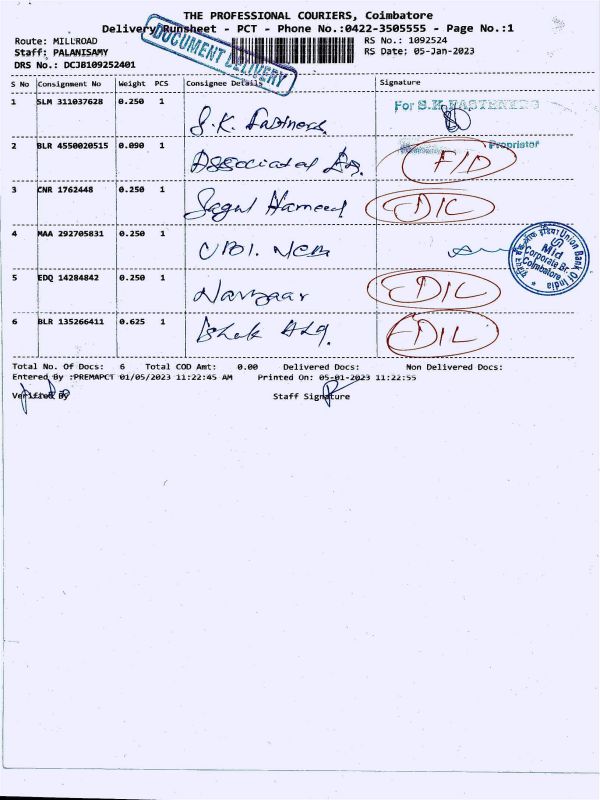 THE PROFESSIONAL COURIERS, Coimbatore
Delivery Runsheet - PCT - Phone No.:0422-3505555 - Page No.:1
DOCUMENT DELIVERY
Route: MILLROAD RS No.: 1092524
Staff: PALANISAMY RS Date: 05-Jan-2023
DRS No.: DCJB109252401
S No Consignment No Weight PCS Consignee Details Signature
1 SLM 311037628 0.250 1 S.K. Fastners For S.K.FASTENERS
2 BLR 4550020515 0.090 1 Associated Proprietor
3 CNR 1762448 0.250 1 Hameed
4 MAA 292705831 0.250 1
Union Bank Of India
Mid Corporate Br. Coimbatore
5 EDQ 14284842 0.250 1
6 BLR 135266411 0.625 1
Total No. Of Docs: 6 Total COD Amt: 0.00 Delivered Docs: Non Delivered Docs:
Entered By :PREMAPCT 01/05/2023 11:22:45 AM Printed On: 05-01-2023 11:22:55
Verified By Staff Signature